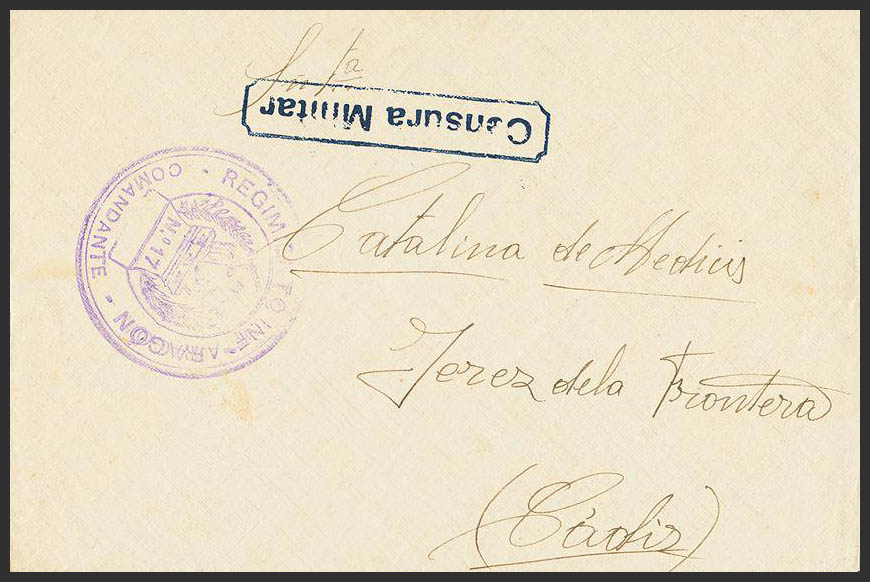 Srta
Censura Militar
REGIMTO INFª ARAGON - COMANDANTE -
N.º 17
Catalina de Medicis
Jerez de la Frontera
(Cádiz)